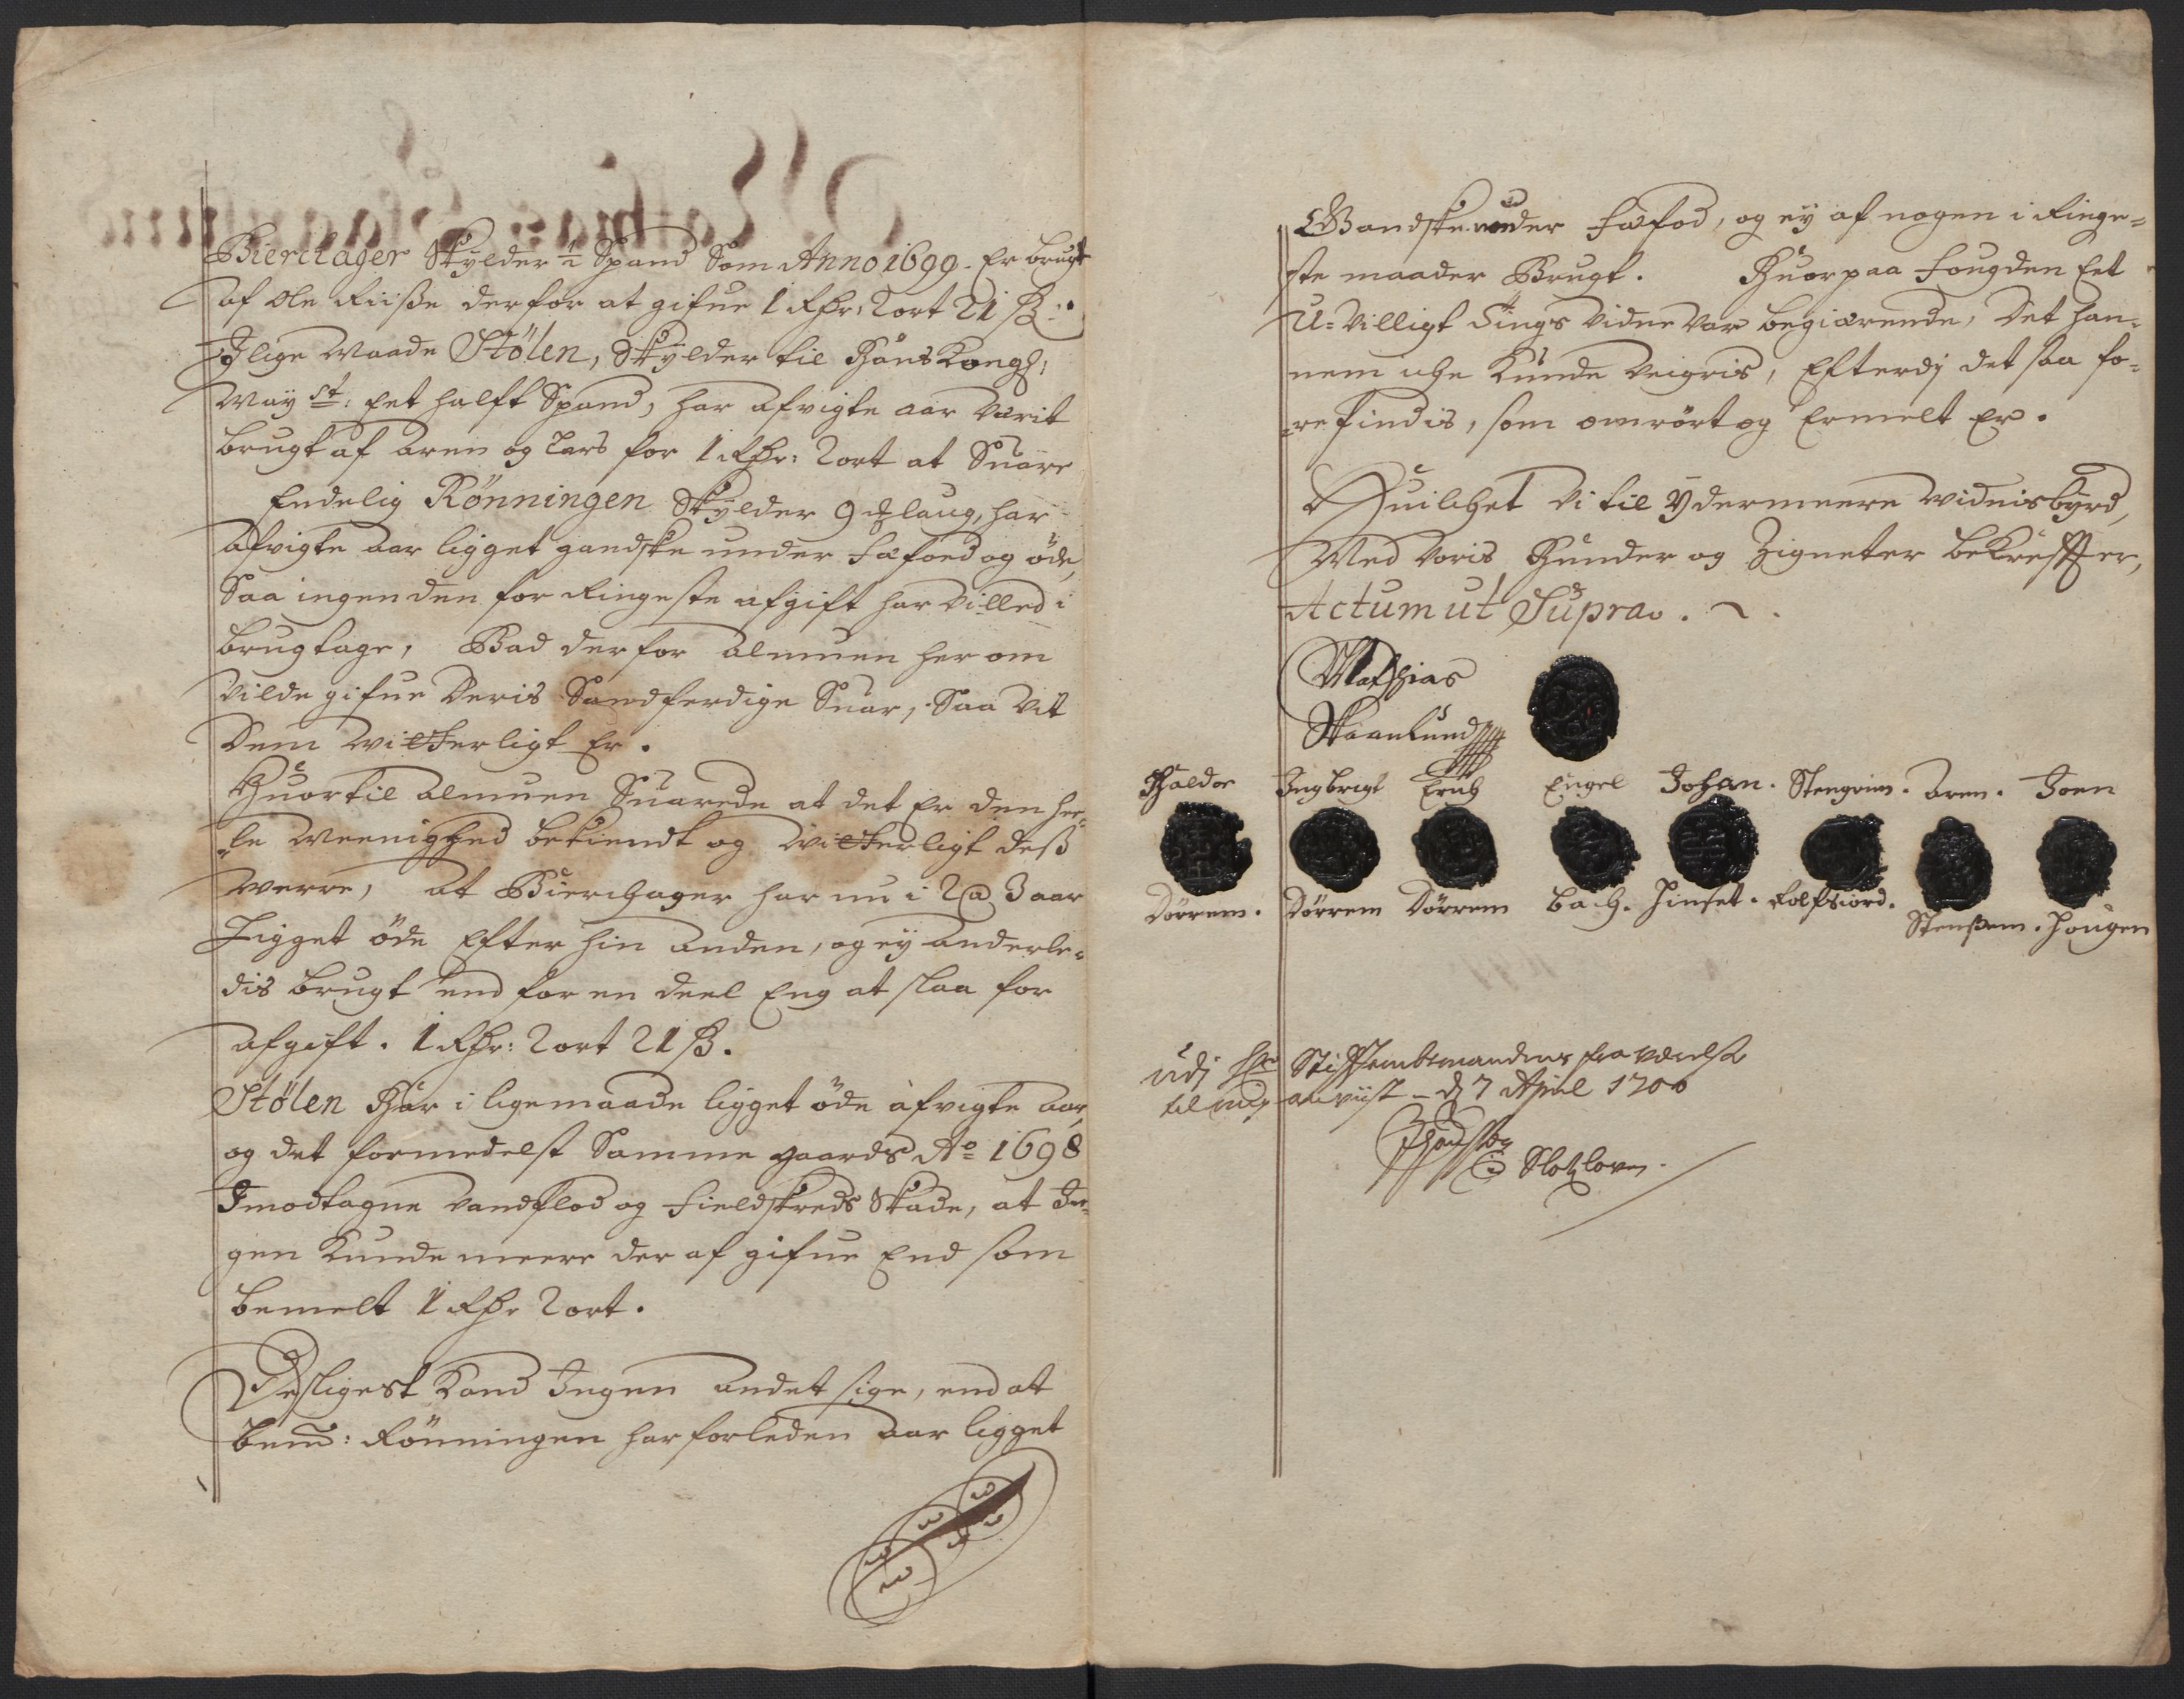 Bierchager Skylder 1 Spand Som Anno 1699. Er brugt
af Ole Riisse derfor at gifue 1 Rdr: 2 ort 21 ß:
J lige Maade Stölen, Skylder til Hans Kongl:
May st: Eet halft Spand, har afvigte aar værit
brugt af Aren og Lars for 1 Rdr: 2 ort at Suare
Endelig Rönningen Skylder 9 laug, har
afvigte aar ligget gandske under Fæfoed og öde,
Saa ingen den for Ringeste afgift har villed i
brug tage, Bad derfor Almuen her om
vilde gifue deris Sandferdige Suar, Saa vit
dem vitterligt Er.
Huortil Almuen Suarede at det Er den hee-
le Meenighed bekiendt og vitterligt dess
verre, at Bierchager har nu i 2 a 3 aar
Ligget öde Efter hin anden, og ey anderle-
dis brugt end for en deel Eng at slaa for
afgift. 1 Rdr: 2 ort 21 ß.
Stölen Har i ligemaade ligget öde afvigte aar,
og det formedelst Samme gaards Ao 1698
Imodtagne Vandflod og Fieldskreds Skade, at In-
gen Kunde meere der af gifue End som
bemelt 1 Rdr 2 ort.
Desligest Kand Ingen andet sige, end at
bemt: Rönningen har forleden aar ligget
Gandske under Fæfod, og ey af nogen i Ringe-
ste maader Brugt. Huorpaa Fougden Eet
U-Villigt Tings Vidne var begiærende, det han-
nem iche Kunde Veigris, Efterdj det saa fo-
re findis, som omrört og Ermelt Er.
Huilchet Vi til Ydermeere Vidnisbyrd,
Med voris Hænder og Zigneter bekreffter,
Actum ut Supra.
Mathias
Skaanlund
Haldor Ingbrigt Erich Engel Johan. Stengrim. Aren. Joen
Dörrem. Dörrem Dörrem Bach. Hinset. Rolfsiord. Stenssem. Hougen
Udj Hr Stifftembtmandens fraværelse
til mig anviist d 7 April 1700
Slotzloven.